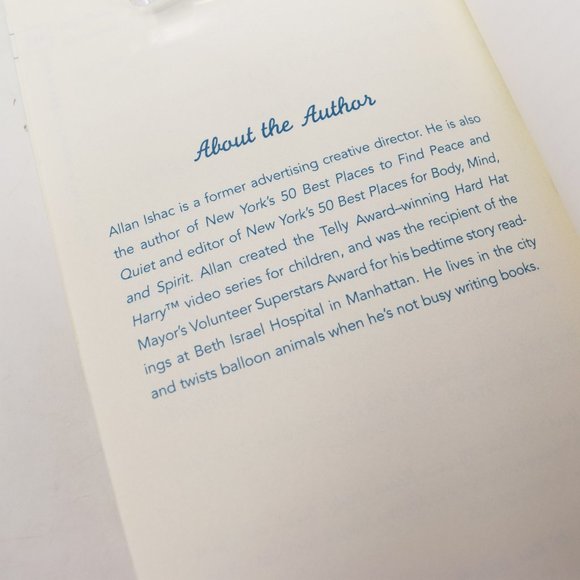 About the Author
Allan Ishac is a former advertising creative director. He is also
the author of New York's 50 Best Places to Find Peace and
Quiet and editor of New York's 50 Best Places for Body, Mind,
and Spirit. Allan created the Telly Award–winning Hard Hat
Harry™ video series for children, and was the recipient of the
Mayor's Volunteer Superstars Award for his bedtime story read-
ings at Beth Israel Hospital in Manhattan. He lives in the city
and twists balloon animals when he's not busy writing books.